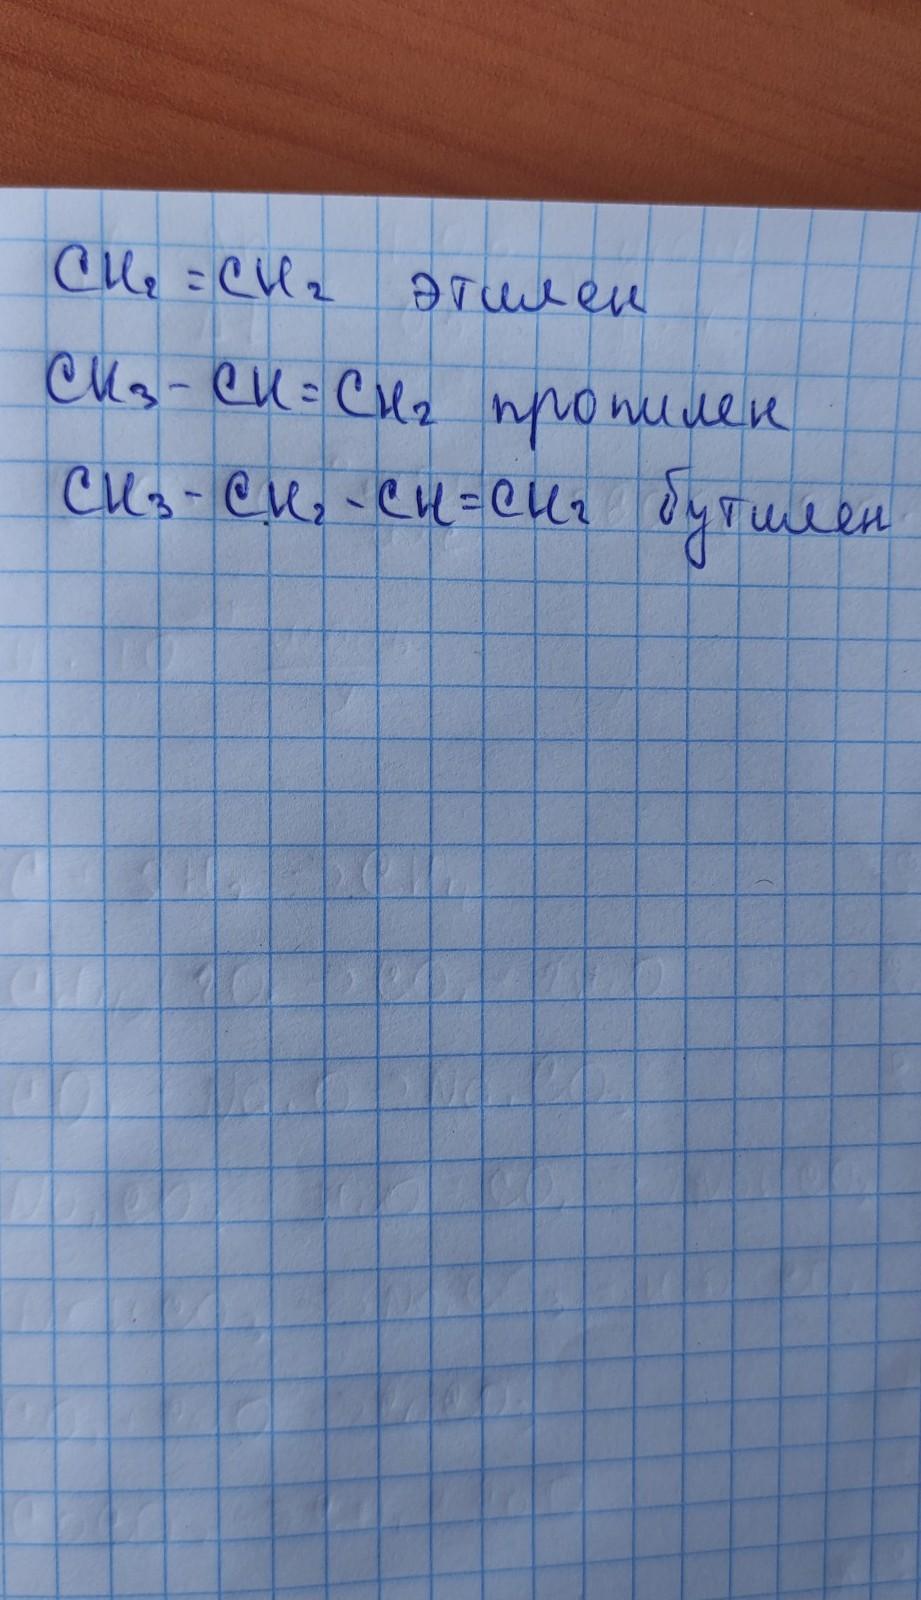 CH₂=CH₂ этилен
CH₃-CH=CH₂ пропилен
CH₃-CH₂-CH=CH₂ бутилен